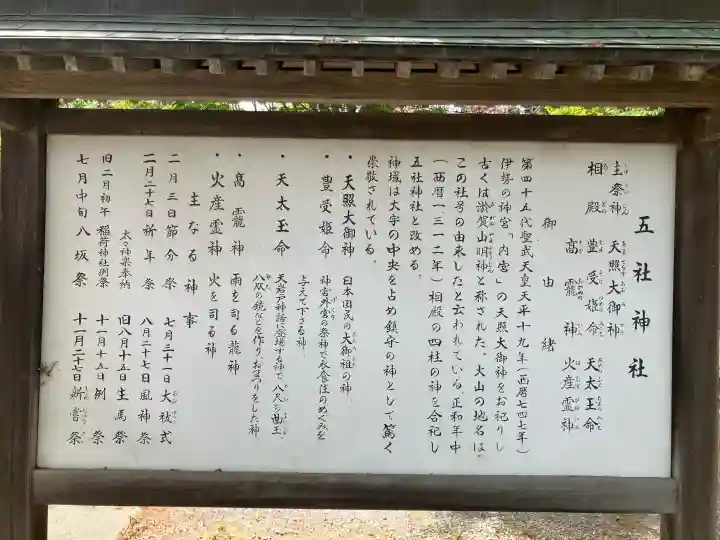 五社神社
主祭神 天照大御神
相殿 豊受姫命 天太玉命
高龗神 火産霊神
御由緒
第四十五代聖武天皇天平十九年(西暦七四七年)
伊勢の神宮「内宮」の天照大御神をお祀りし
古くは滋賀山明神と称された。大山の地名は
この社号の由来したと云われている。正和年中
(西暦一三一二年)相殿の四柱の神を合祀し
五社神社と改める。
神域は大字の中央を占め鎮守の神として篤く
崇敬されている。
・天照大御神 日本国民の大御祖の神
・豊受姫命 神宮外宮の祭神で衣食住のめぐみを
与えて下さる神
・天太玉命 天岩戸神話に登場する神で八尺の曲玉
八咫の鏡などを作りおまつりをした神
・高龗神 雨を司る龍神
・火産霊神 火を司る神
主なる神事
二月三日節分祭 七月三十一日大祓式
二月二十七日祈年祭 八月二十七日風神祭
太々神楽奉納 旧八月十五日生馬祭
旧二月初午 稲荷神社例祭 十一月十五日例祭
七月中旬八坂祭 十一月二十七日新嘗祭